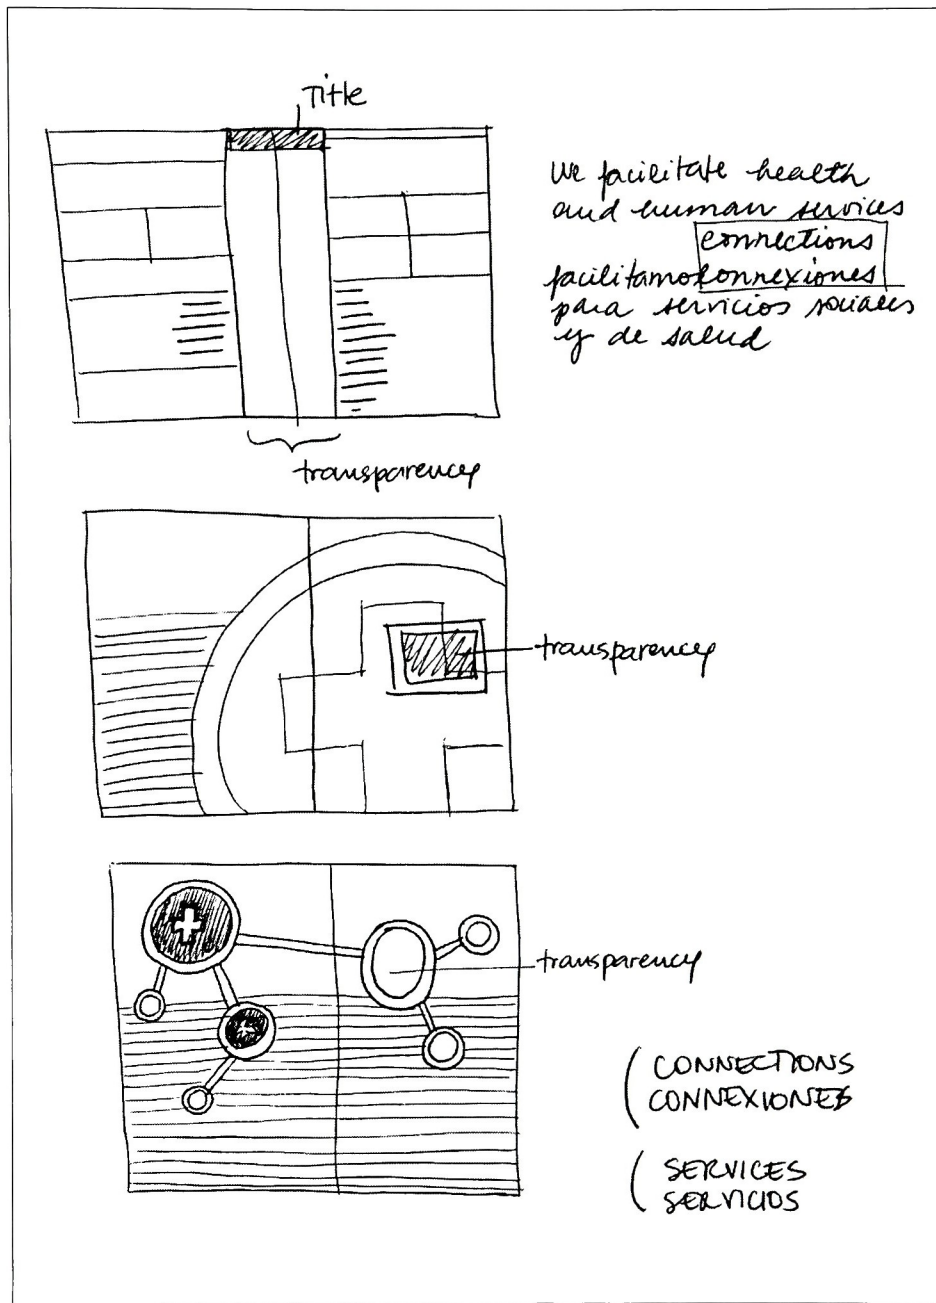 Title
We facilitate health
and human services
connections
facilitamos connexiones
para servicios sociales
y de salud
transparency
transparency
transparency
(CONNECTIONS
CONNEXIONES
(SERVICES
SERVICIOS